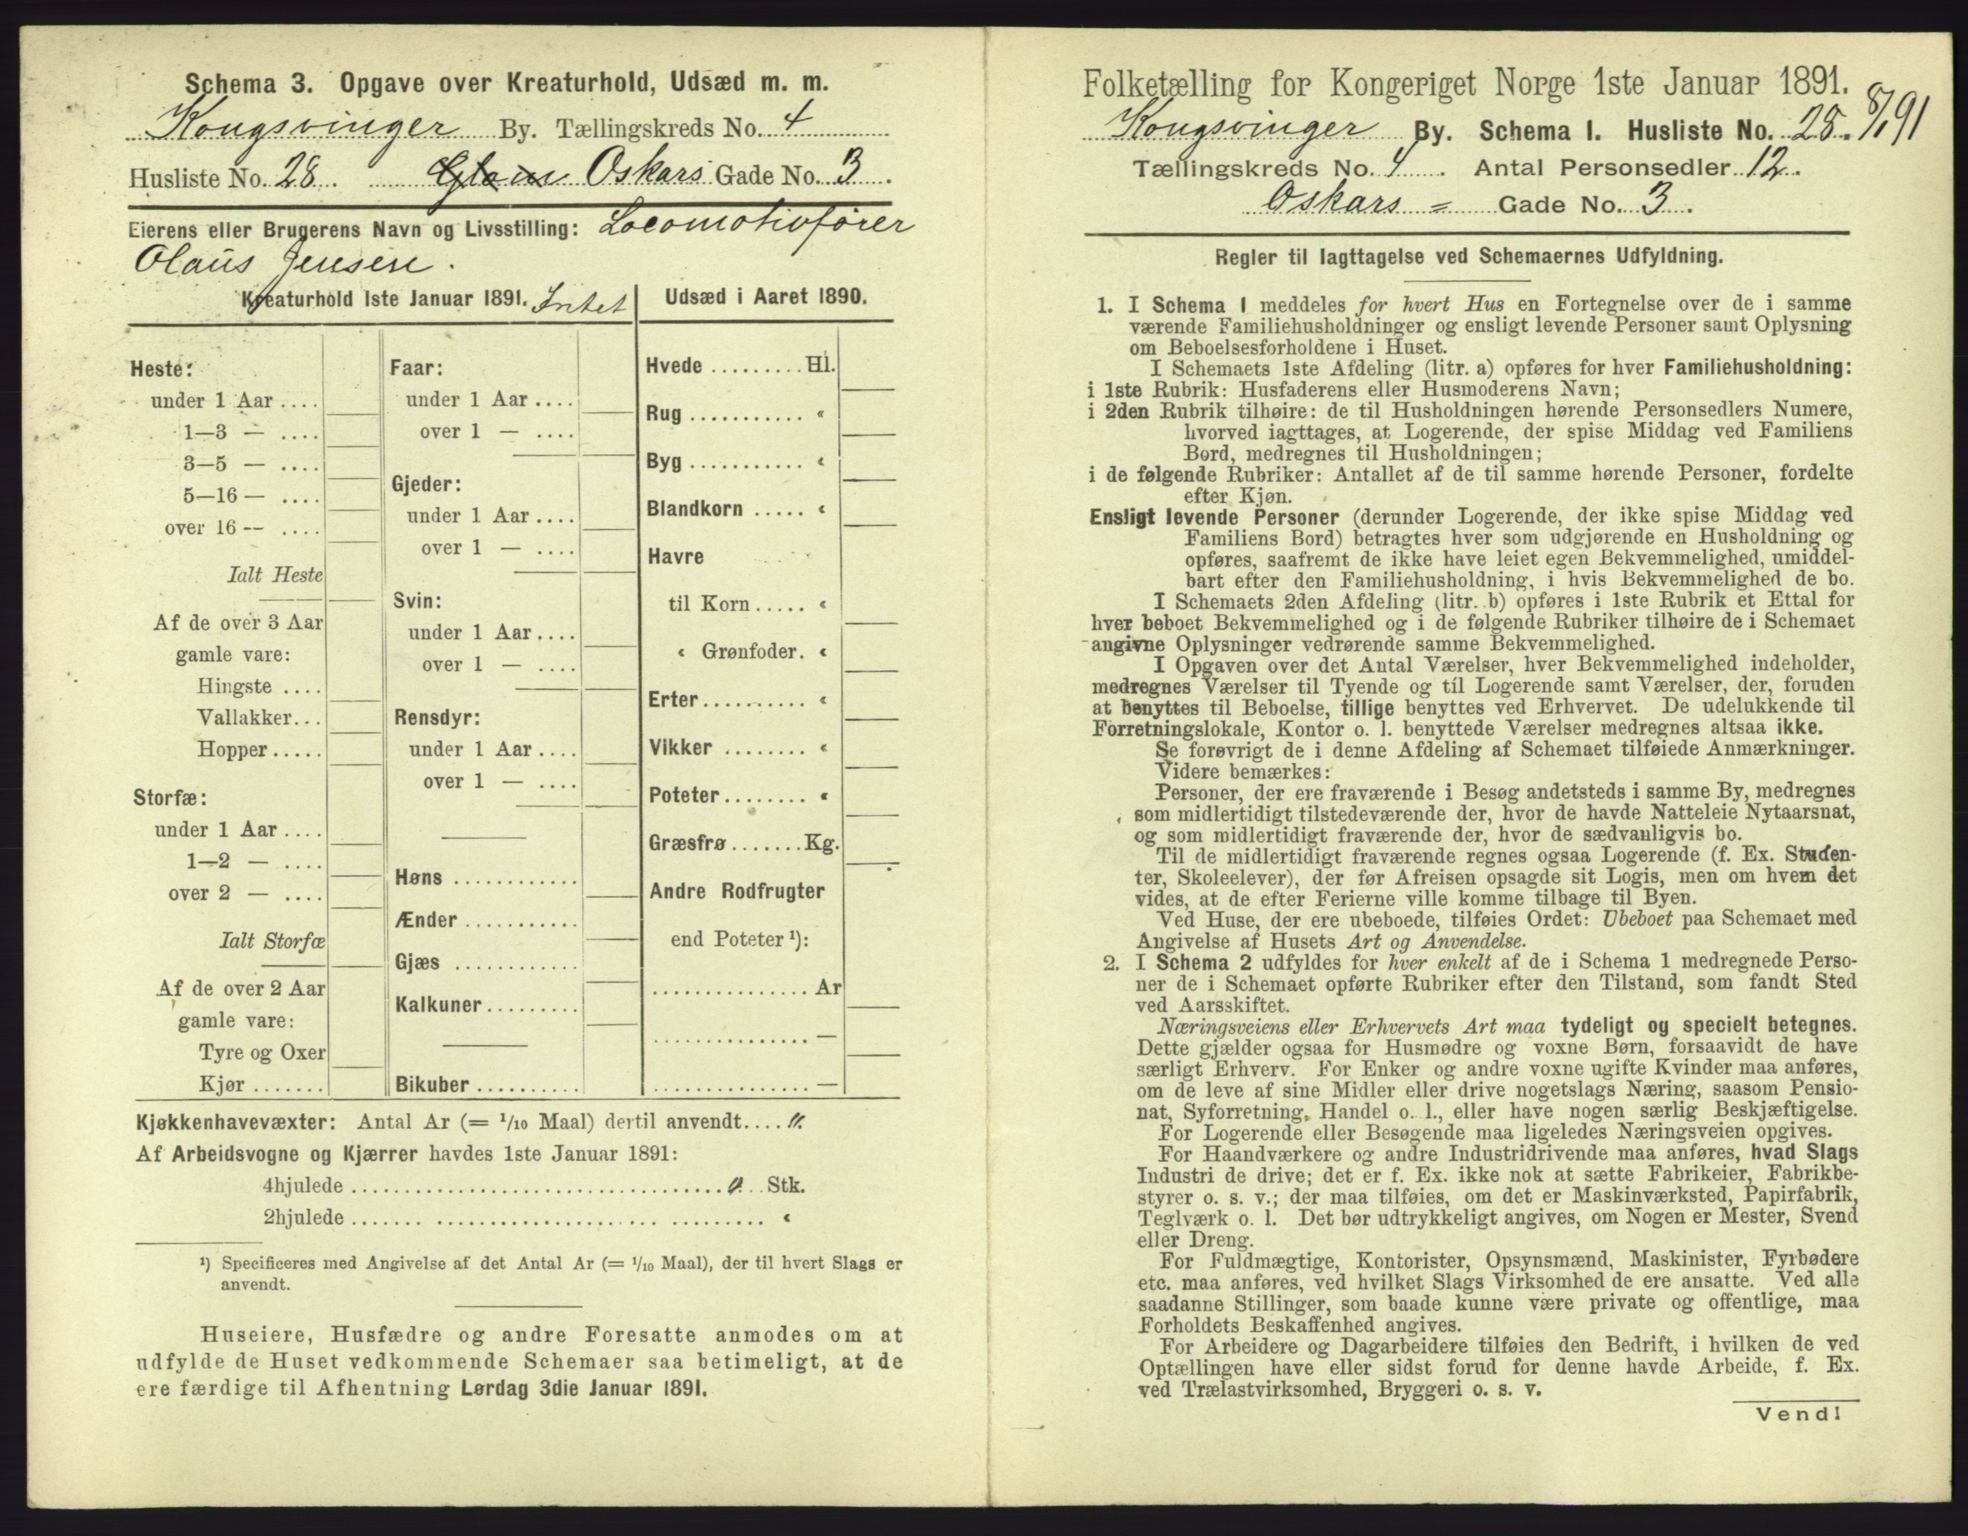 Schema 3. Opgave over Kreaturhold, Udsæd m. m.
Kongsvinger By. Tællingskreds No. 4
Husliste No. 28. Oskars Gade No. 3.
Eierens eller Brugerens Navn og Livsstilling: Locomotivfører
Olaus Jensen.
Kreaturhold 1ste Januar 1891. Intet
Heste:
under 1 Aar ....
1—3 — ....
3—5 — ....
5—16 — ....
over 16 — ....
Ialt Heste
Af de over 3 Aar
gamle vare:
Hingste ....
Vallakker...
Hopper.....
Storfæ:
under 1 Aar ....
1—2 — ....
over 2 — ....
Ialt Storfæ
Af de over 2 Aar
gamle vare:
Tyre og Oxer
Kjør .......
Faar:
under 1 Aar ....
over 1 — ....
Gjeder:
under 1 Aar ....
over 1 — ....
Svin:
under 1 Aar ....
over 1 — ....
Rensdyr:
under 1 Aar ....
over 1 — ....
Høns ............
Ænder ...........
Gjæs ............
Kalkuner.........
Bikuber ..........
Udsæd i Aaret 1890.
Hvede ......... Hl.
Rug ........... «
Byg ........... «
Blandkorn ..... «
Havre
til Korn..... «
« Grønfoder. «
Erter.......... «
Vikker ........ «
Poteter........ «
Græsfrø ....... Kg.
Andre Rodfrugter
end Poteter ¹):
............... Ar
............... —
............... —
Kjøkkenhavevæxter: Antal Ar (= 1/10 Maal) dertil anvendt.... ".
Af Arbeidsvogne og Kjærrer havdes 1ste Januar 1891:
4hjulede .................................... 0 Stk.
2hjulede .................................... «
¹) Specificeres med Angivelse af det Antal Ar (= 1/10 Maal), der til hvert Slags er
anvendt.
Huseiere, Husfædre og andre Foresatte anmodes om at
udfylde de Huset vedkommende Schemaer saa betimeligt, at de
ere færdige til Afhentning Lørdag 3die Januar 1891.
Folketælling for Kongeriget Norge 1ste Januar 1891.
Kongsvinger By. Schema I. Husliste No. 28. 8/1 91
Tællingskreds No. 4. Antal Personsedler 12.
Oskars = Gade No. 3.
Regler til Iagttagelse ved Schemaernes Udfyldning.
1. I Schema 1 meddeles for hvert Hus en Fortegnelse over de i samme
værende Familiehusholdninger og ensligt levende Personer samt Oplysning
om Beboelsesforholdene i Huset.
I Schemaets 1ste Afdeling (litr. a) opføres for hver Familiehusholdning:
i 1ste Rubrik: Husfaderens eller Husmoderens Navn;
i 2den Rubrik tilhøire: de til Husholdningen hørende Personsedlers Numere,
hvorved iagttages, at Logerende, der spise Middag ved Familiens
Bord, medregnes til Husholdningen;
i de følgende Rubriker: Antallet af de til samme hørende Personer, fordelte
efter Kjøn.
Ensligt levende Personer (derunder Logerende, der ikke spise Middag ved
Familiens Bord) betragtes hver som udgjørende en Husholdning og
opføres, saafremt de ikke have leiet egen Bekvemmelighed, umiddel-
bart efter den Familiehusholdning, i hvis Bekvemmelighed de bo.
I Schemaets 2den Afdeling (litr. b) opføres i 1ste Rubrik et Ettal for
hver beboet Bekvemmelighed og i de følgende Rubriker tilhøire de i Schemaet
angivne Oplysninger vedrørende samme Bekvemmelighed.
I Opgaven over det Antal Værelser, hver Bekvemmelighed indeholder,
medregnes Værelser til Tyende og til Logerende samt Værelser, der, foruden
at benyttes til Beboelse, tillige benyttes ved Erhvervet. De udelukkende til
Forretningslokale, Kontor o. l. benyttede Værelser medregnes altsaa ikke.
Se forøvrigt de i denne Afdeling af Schemaet tilføiede Anmærkninger.
Videre bemærkes:
Personer, der ere fraværende i Besøg andetsteds i samme By, medregnes
som midlertidigt tilstedeværende der, hvor de havde Natteleie Nytaarsnat,
og som midlertidigt fraværende der, hvor de sædvanligvis bo.
Til de midlertidigt fraværende regnes ogsaa Logerende (f. Ex. Studen-
ter, Skoleelever), der før Afreisen opsagde sit Logis, men om hvem det
vides, at de efter Ferierne ville komme tilbage til Byen.
Ved Huse, der ere ubeboede, tilføies Ordet: Ubeboet paa Schemaet med
Angivelse af Husets Art og Anvendelse.
2. I Schema 2 udfyldes for hver enkelt af de i Schema 1 medregnede Perso-
ner de i Schemaet opførte Rubriker efter den Tilstand, som fandt Sted
ved Aarsskiftet.
Næringsveiens eller Erhvervets Art maa tydeligt og specielt betegnes.
Dette gjælder ogsaa for Husmødre og voxne Børn, forsaavidt de have
særligt Erhverv. For Enker og andre voxne ugifte Kvinder maa anføres,
om de leve af sine Midler eller drive nogetslags Næring, saasom Pensio-
nat, Syforretning, Handel o. l., eller have nogen særlig Beskjæftigelse.
For Logerende eller Besøgende maa ligeledes Næringsveien opgives.
For Haandværkere og andre Industridrivende maa anføres, hvad Slags
Industri de drive; det er f. Ex. ikke nok at sætte Fabrikeier, Fabrikbe-
styrer o. s. v.; der maa tilføies, om det er Maskinværksted, Papirfabrik,
Teglværk o. l. Det bør udtrykkeligt angives, om Nogen er Mester, Svend
eller Dreng.
For Fuldmægtige, Kontorister, Opsynsmænd, Maskinister, Fyrbødere
etc. maa anføres, ved hvilket Slags Virksomhed de ere ansatte. Ved alle
saadanne Stillinger, som baade kunne være private og offentlige, maa
Forholdets Beskaffenhed angives.
For Arbeidere og Dagarbeidere tilføies den Bedrift, i hvilken de ved
Optællingen have eller sidst forud for denne havde Arbeide, f. Ex.
ved Trælastvirksomhed, Bryggeri o. s. v.
Vend!